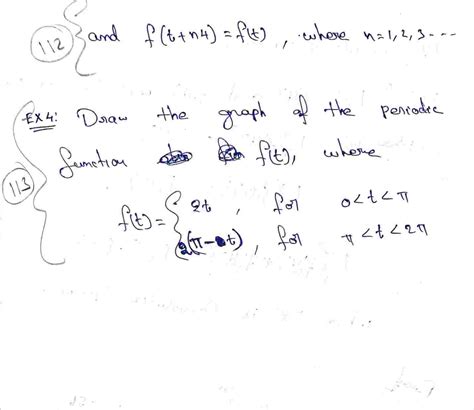 112 and f(t+n4) = f(t), where n=1,2,3----
Ex4: Draw the graph of the periodic
113 function f(t), where
f(t) = { 2t , for 0<t<π
2(π-t) , for π<t<2π